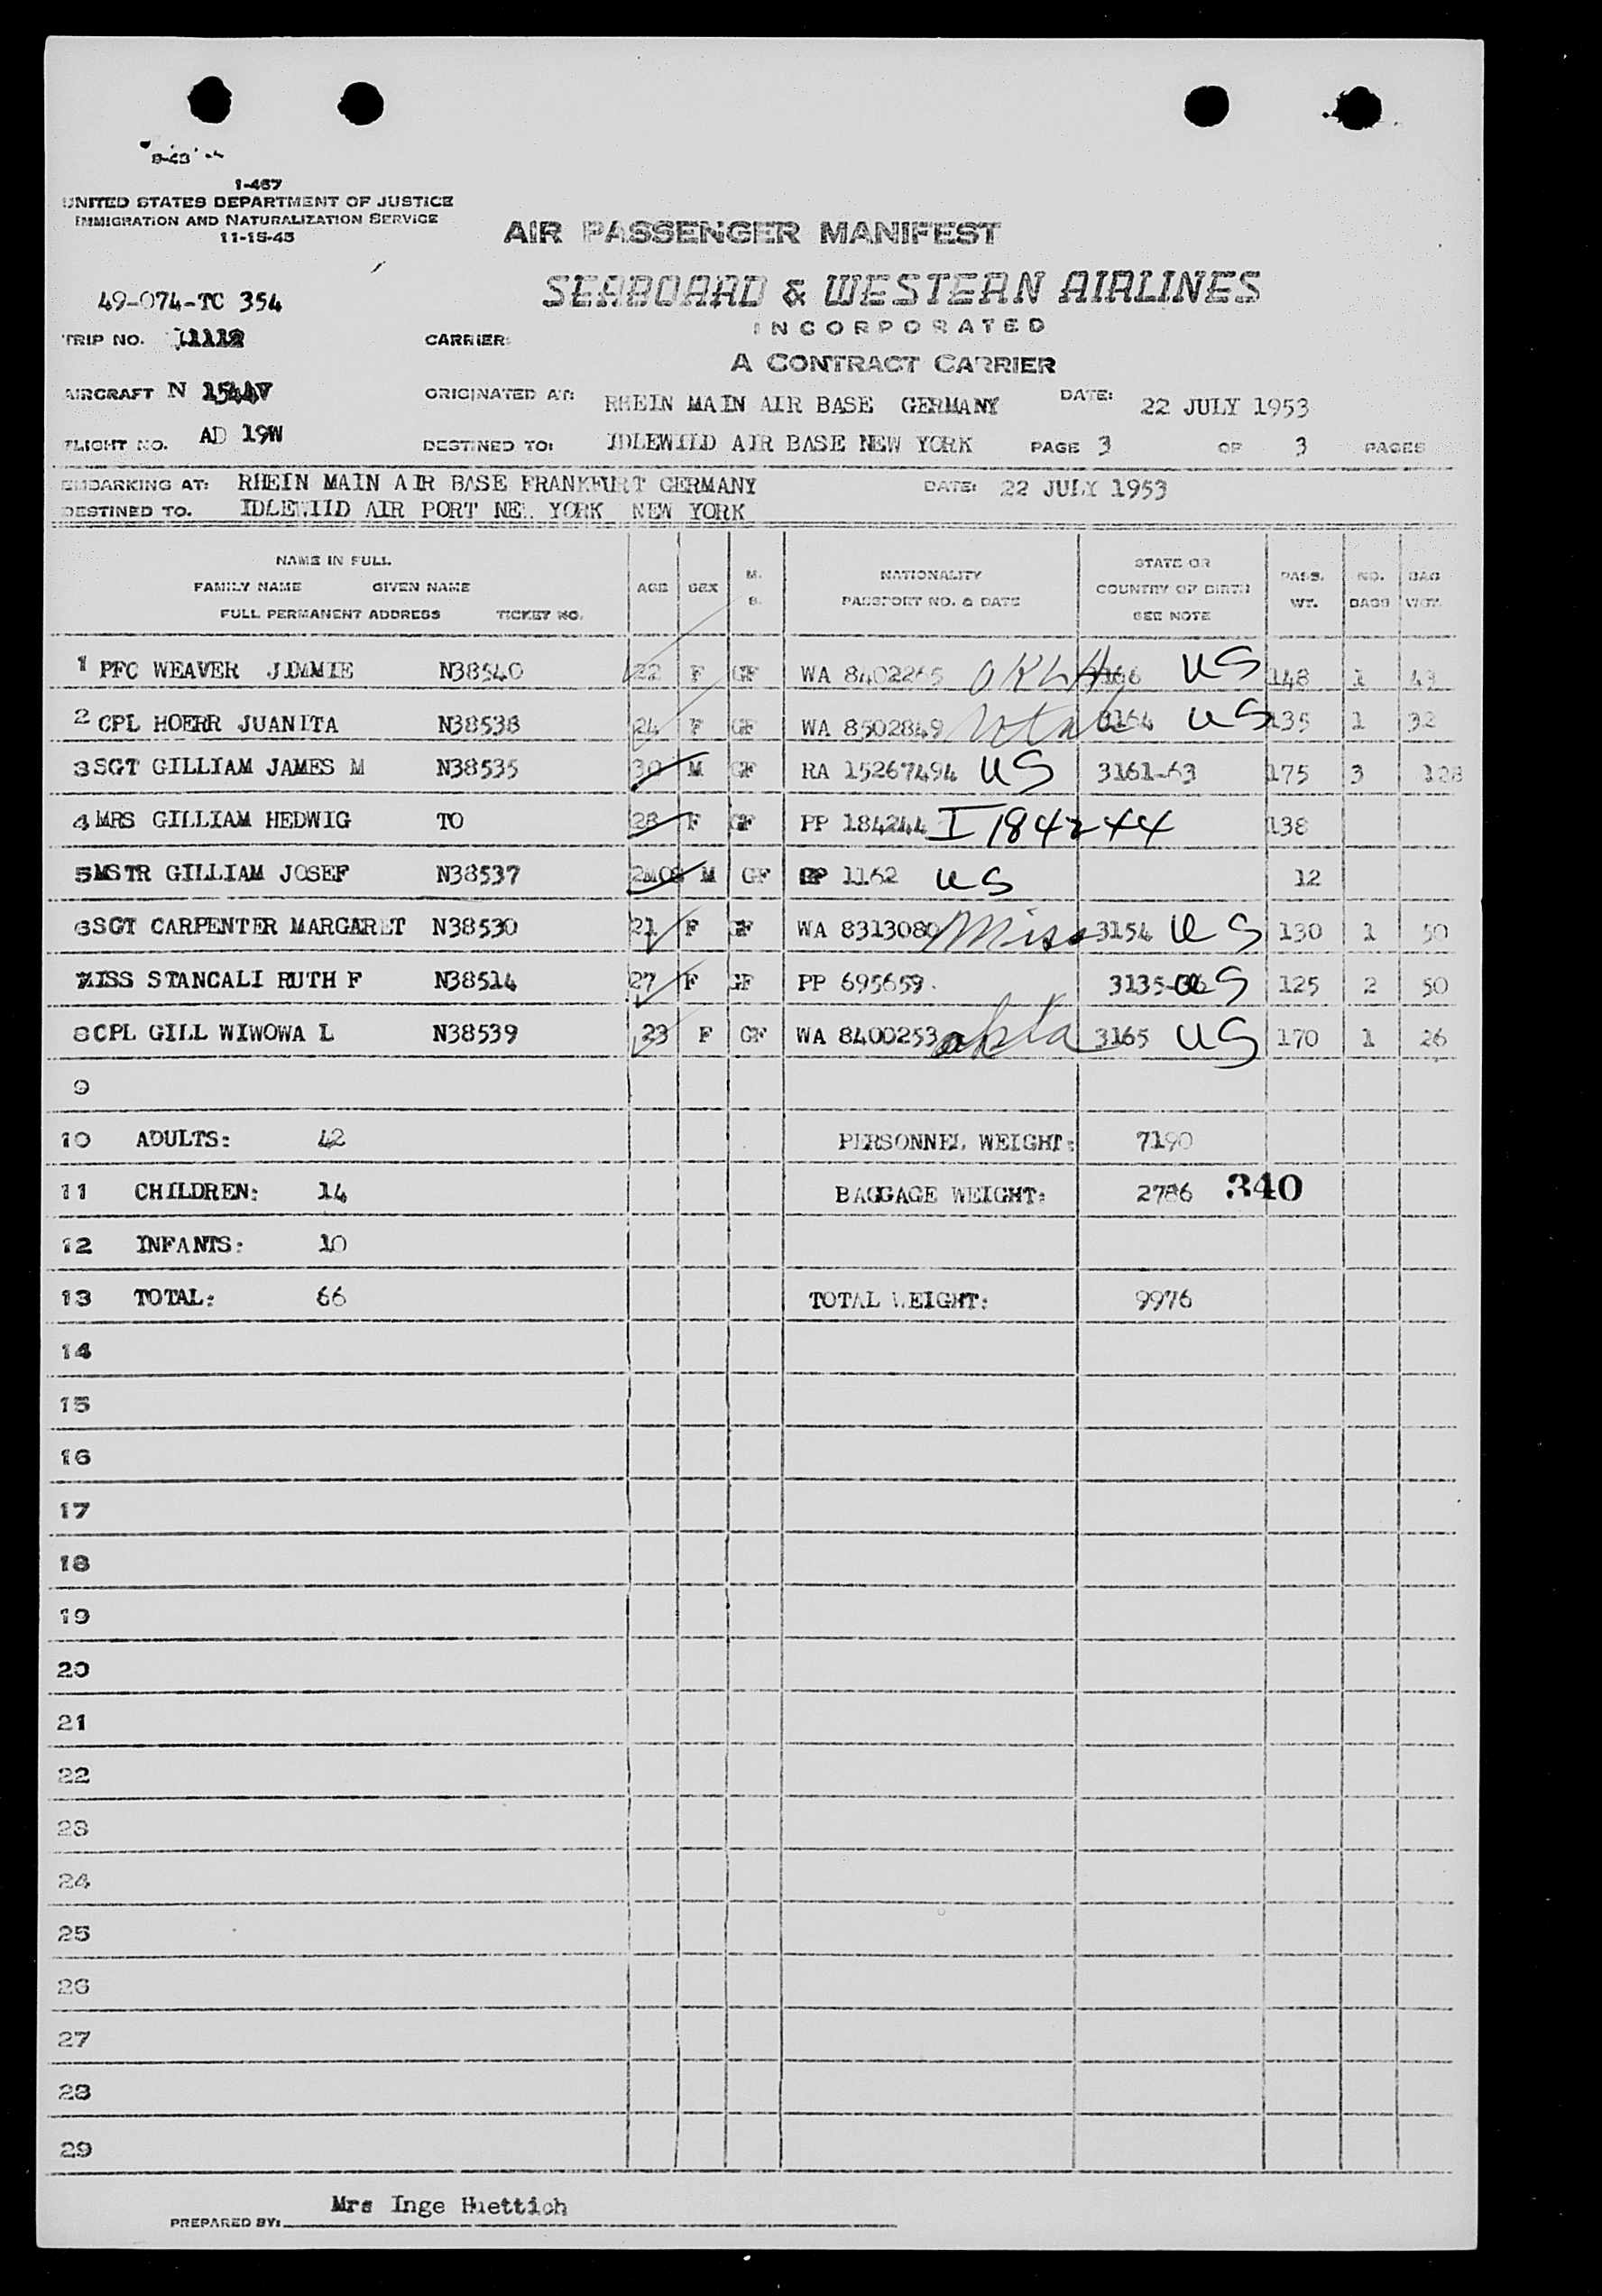 1-467
UNITED STATES DEPARTMENT OF JUSTICE
IMMIGRATION AND NATURALIZATION SERVICE
11-15-45
AIR PASSENGER MANIFEST
SEABOARD & WESTERN AIRLINES
INCORPORATED
A CONTRACT CARRIER
49-074-TC 354
TRIP NO. CARRIER:
AIRCRAFT N ORIGINATED AT: RHEIN MAIN AIR BASE GERMANY DATE: 22 JULY 1953
FLIGHT NO. AD 19W DESTINED TO: IDLEWILD AIR BASE NEW YORK PAGE 3 OF 3 PAGES
EMBARKING AT: RHEIN MAIN AIR BASE FRANKFURT GERMANY DATE: 22 JULY 1953
DESTINED TO. IDLEWILD AIR PORT NEW YORK NEW YORK
NAME IN FULL
FAMILY NAME GIVEN NAME
FULL PERMANENT ADDRESS TICKET NO.
AGE SEX M. S.
NATIONALITY
PASSPORT NO. & DATE
STATE OR
COUNTRY OF BIRTH
SEE NOTE
PASS. WT. NO. BAGS BAG WGT.
1 PFC WEAVER JIMMIE N38540 22 F GF WA 8402265 OKLA US 148 1 43
2 CPL HOERR JUANITA N38538 24 F GF WA 8502849 Utah 3164 US 135 1 32
3 SGT GILLIAM JAMES M N38535 30 M GF RA 15267494 US 3161-63 175 3 128
4 MRS GILLIAM HEDWIG TO 28 F GF PP 184244 I 184244 138
5 MSTR GILLIAM JOSEF N38537 2MOS M GF PP 1162 US 12
6 SGT CARPENTER MARGARET N38530 21 F GF WA 8313080 Miss 3154 US 130 1 50
7 MISS STANCALI RUTH F N38514 27 F GF PP 695659 3135-36 US 125 2 50
8 CPL GILL WIWOWA L N38539 23 F GF WA 8400253 okla 3165 US 170 1 26
9
10 ADULTS: 42 PERSONNEL WEIGHT: 7190
11 CHILDREN: 14 BAGGAGE WEIGHT: 2786 340
12 INFANTS: 10
13 TOTAL: 66 TOTAL WEIGHT: 9976
14
15
16
17
18
19
20
21
22
23
24
25
26
27
28
29
PREPARED BY: Mrs Inge Huettich